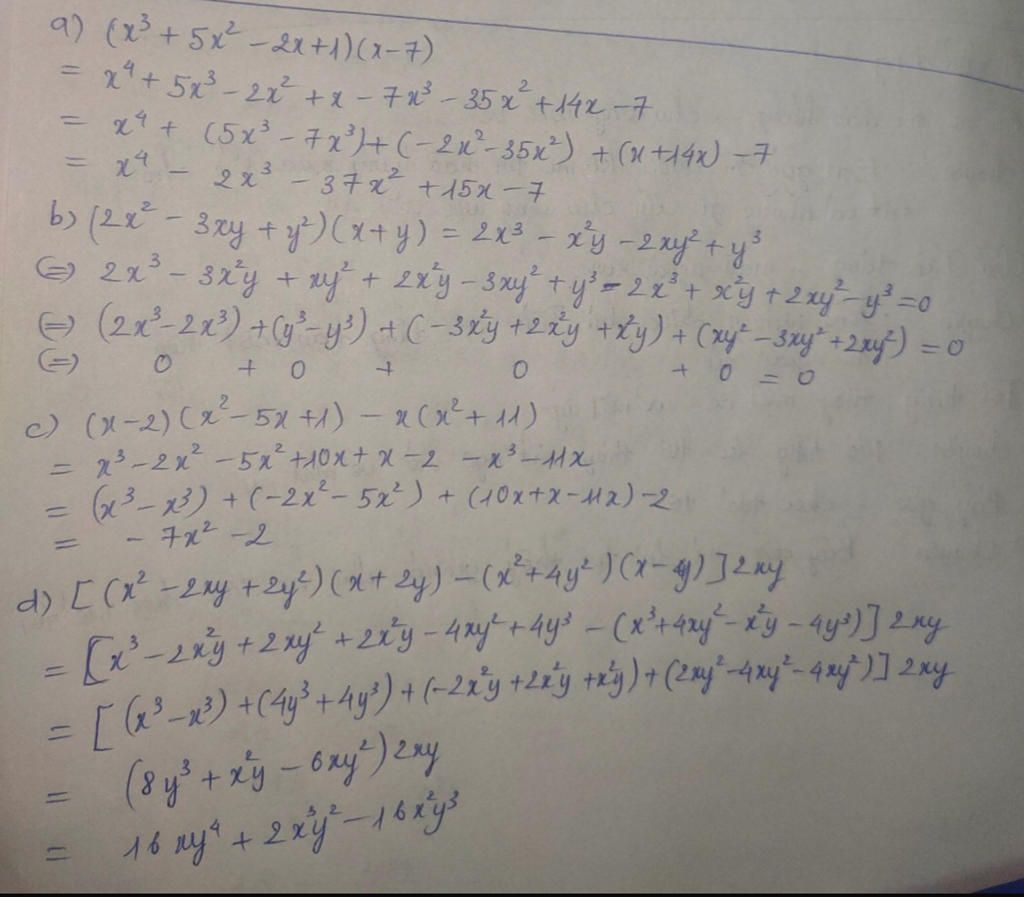 a) (x³ + 5x² - 2x + 1)(x - 7)
= x⁴ + 5x³ - 2x² + x - 7x³ - 35x² + 14x - 7
= x⁴ + (5x³ - 7x³) + (-2x² - 35x²) + (x + 14x) - 7
= x⁴ - 2x³ - 37x² + 15x - 7
b) (2x² - 3xy + y²)(x + y) = 2x³ - x²y - 2xy² + y³
(=) 2x³ - 3x²y + xy² + 2x²y - 3xy² + y³ - 2x³ + x²y + 2xy² - y³ = 0
(=) (2x³ - 2x³) + (y³ - y³) + (-3x²y + 2x²y + x²y) + (xy² - 3xy² + 2xy²) = 0
(=) 0 + 0 + 0 + 0 = 0
c) (x - 2)(x² - 5x + 1) - x(x² + 11)
= x³ - 2x² - 5x² + 10x + x - 2 - x³ - 11x
= (x³ - x³) + (-2x² - 5x²) + (10x + x - 11x) - 2
= - 7x² - 2
d) [(x² - 2xy + 2y²)(x + 2y) - (x² + 4y²)(x - y)] 2xy
= [x³ - 2x²y + 2xy² + 2x²y - 4xy² + 4y³ - (x³ + 4xy² - x²y - 4y³)] 2xy
= [(x³ - x³) + (4y³ + 4y³) + (-2x²y + 2x²y + x²y) + (2xy² - 4xy² - 4xy²)] 2xy
= (8y³ + x²y - 6xy²) 2xy
= 16xy⁴ + 2x³y² - 16x²y³